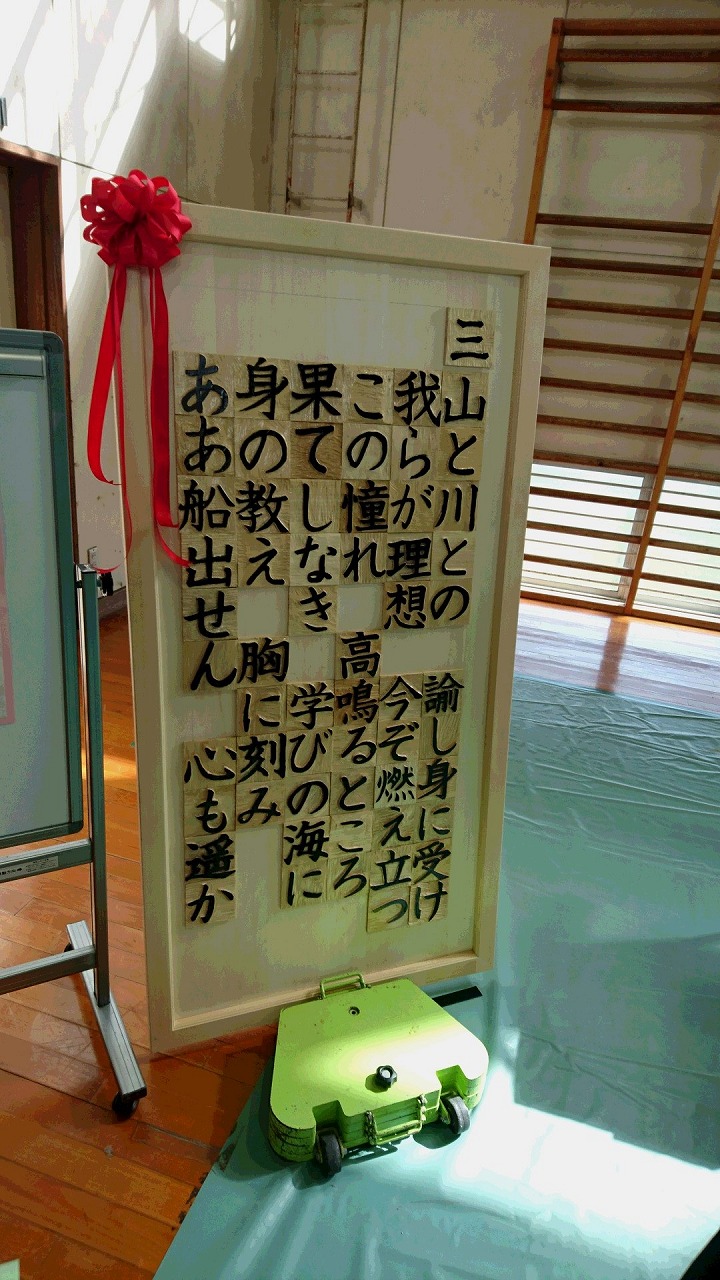 三
山と川との 諭し身に受け
我らが理想 今ぞ燃え立つ
この憧れ 高鳴るところ
果てしなき 学びの海に
身の教え 胸に刻み
ああ船出せん 心も遥か